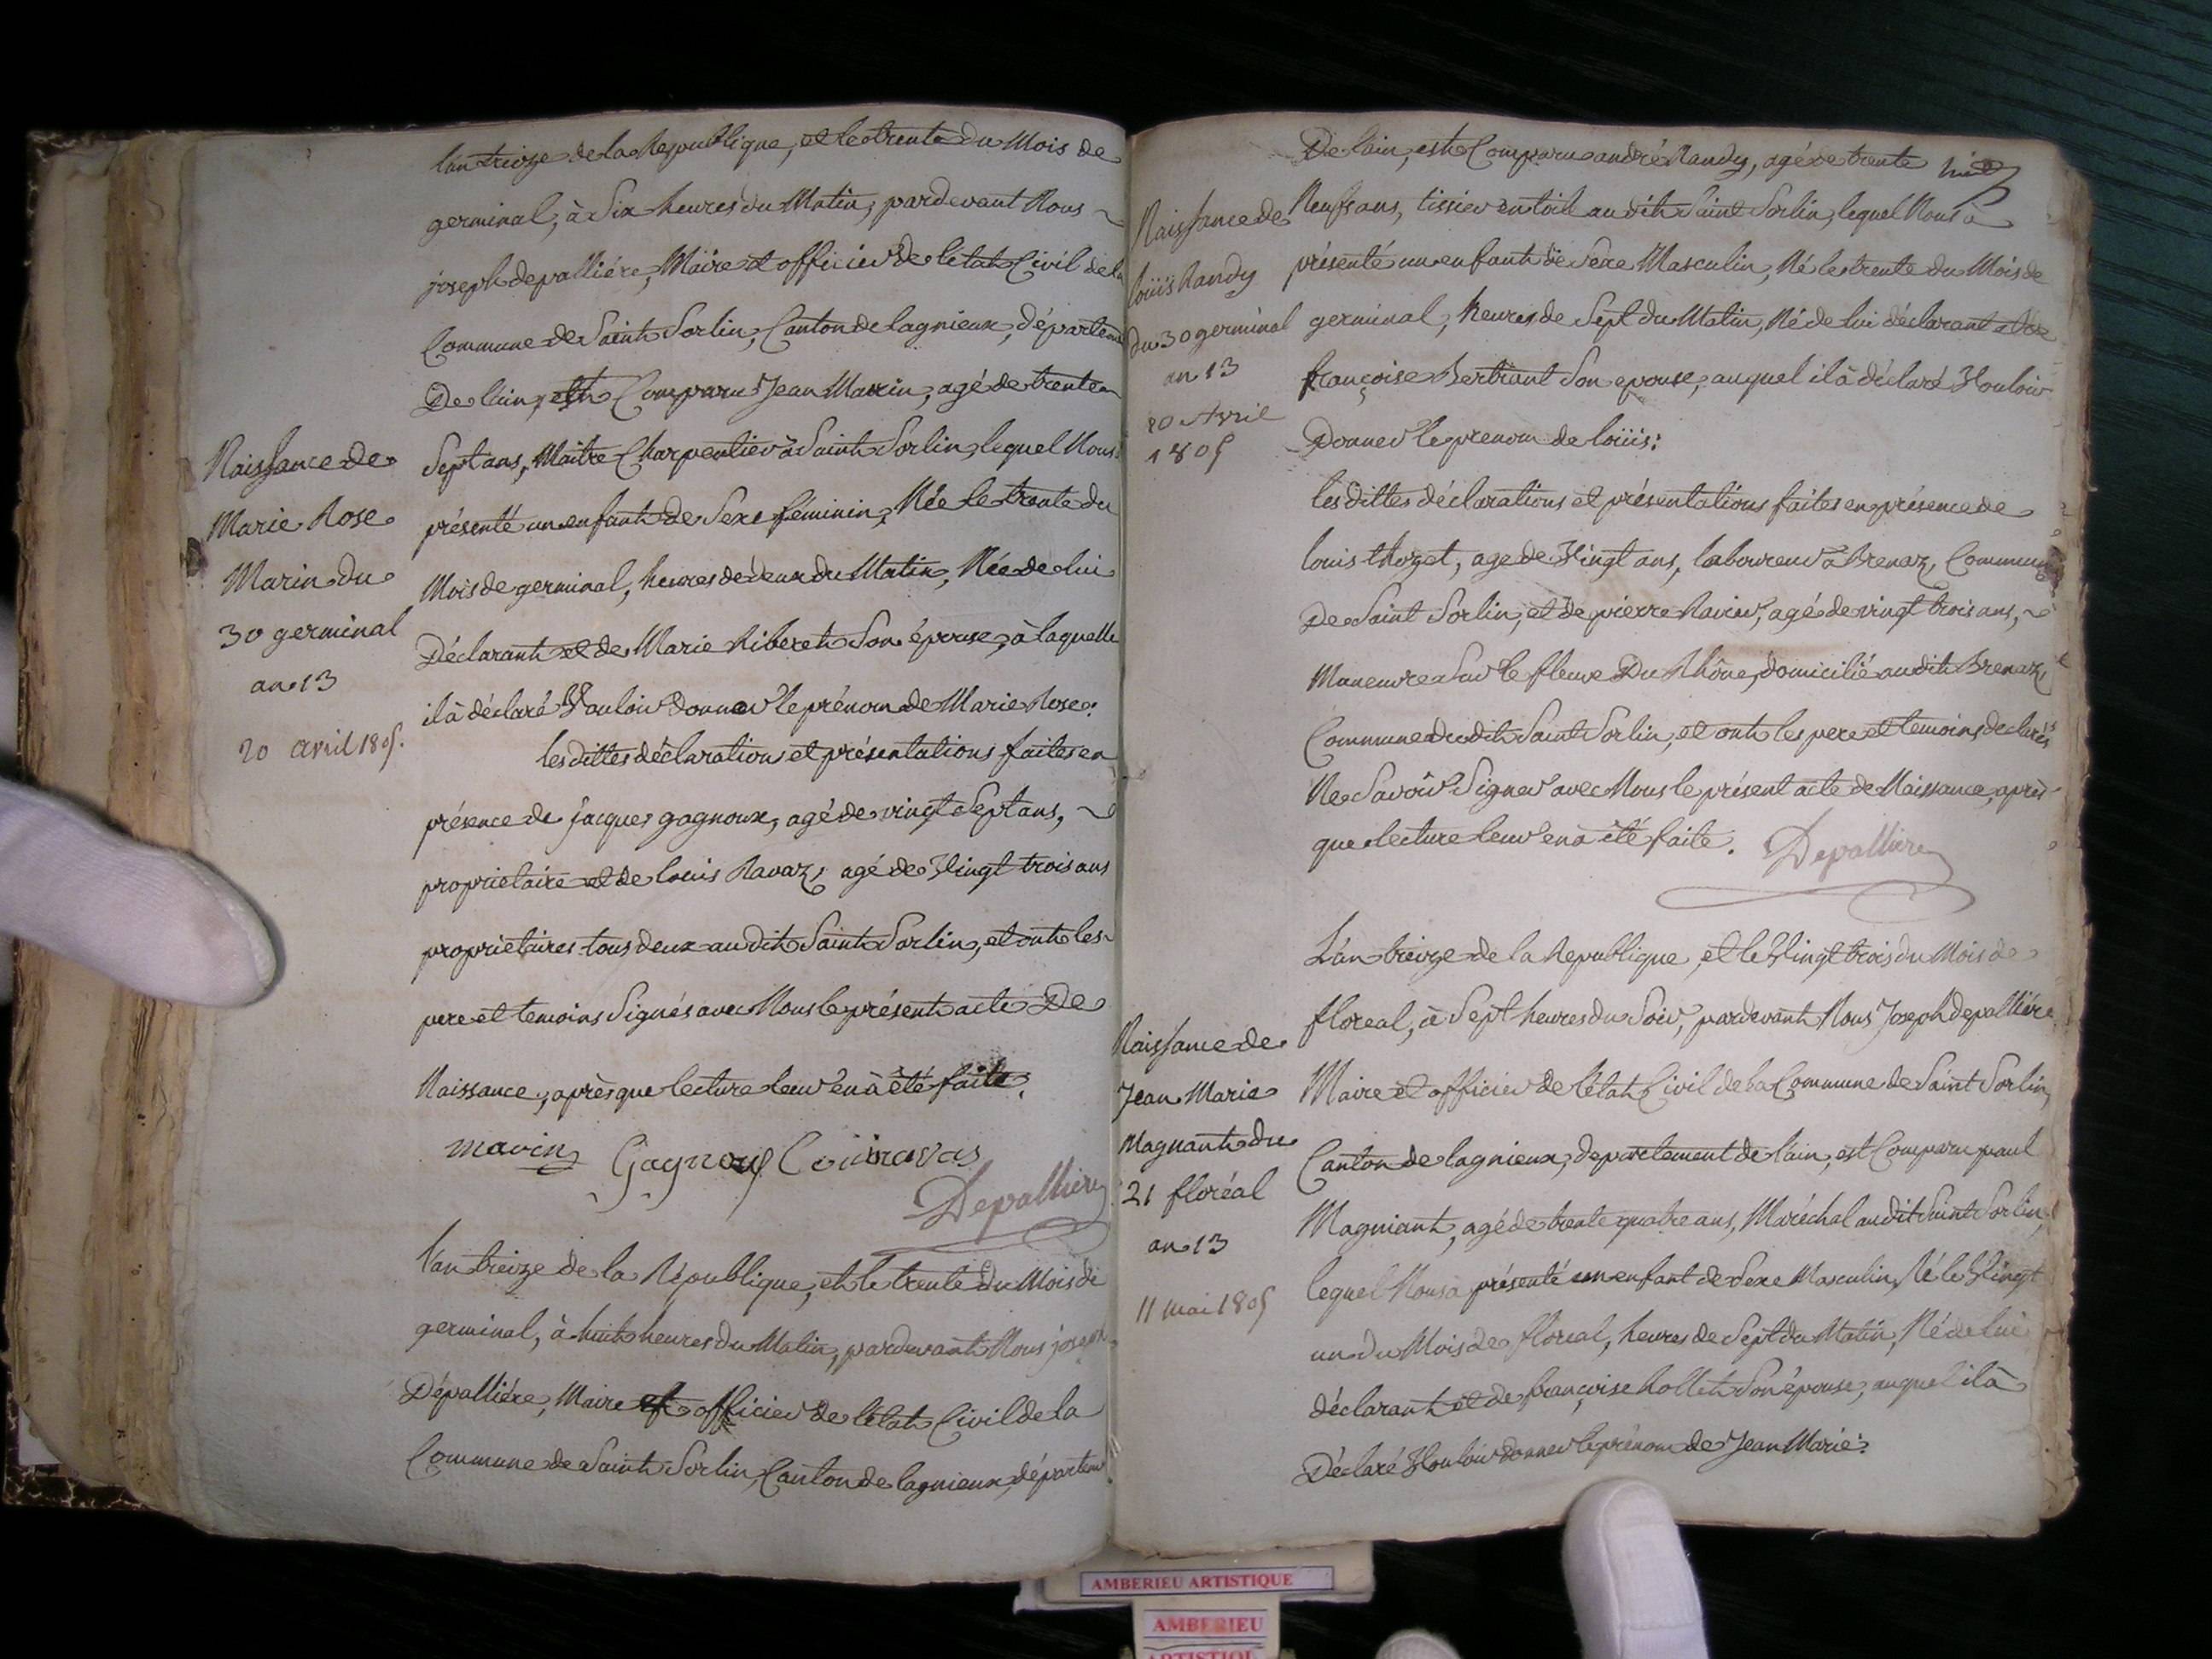 l'an treize de la Republique, et le trente du Mois de
germinal, à Six heures du Matin, pardevant Nous
joseph depalliére, Maire et officier de l'état Civil de la
Commune de Saint Sorlin, Canton de lagnieux, départem
De l'ain, est Comparu Jean Marin, agé de trente
Naissance de
Marie Rose
Marin du
30 germinal
an 13
20 avril 1805.
Sept ans, Maitre Charpentier à Saint Sorlin, lequel Nous
présenté un enfant de Sexe féminin, Née le trente du
Mois de germinal, heures de deux du Matin, Née de lui
Déclarant et de Marie Ribereth Son épouse, à laquelle
il à déclaré Vouloir donner le prénom de Marie Rose.
les dittes déclaration et présentations faites en
présence de jacques gagnoux, agé de vingt Sept ans,
proprietaire et de louis Ravaz, agé de Vingt trois ans
proprietaires tous deux au dit Saint Sorlin, et ont les
pere et temoins Signés avec Nous le présent acte De
Naissance, après que lecture leur en à été faite.
marin Gagnoux Louiravas
Depalliere
l'an treize de la République, et le trente du Mois de
germinal, à huit heures du Matin, pardevant Nous joseph
Dépalliére, Maire et officier de l'état Civil de la
Commune de Saint Sorlin, Canton de lagnieux, départem
De l'ain, est Comparu andré Randy, agé de trente
Naissance de
loüis Randy
du 30 germinal
an 13
20 Avril
1805
Neuf ans, tissier en toile au dit Saint Sorlin, lequel Nous à
présenté un enfant de Sexe Masculin, Né le trente du Mois de
germinal, heures de Sept du Matin, Né de lui déclarant et de
françoise Bertrant Son epouse, auquel il à déclaré Vouloir
Donner le prenom de loüis:
les dittes déclarations et présentations faites en présence de
louis thozet, age de Vingt ans, laboureur à Brenaz, Commune
De Saint Sorlin, et de pierre Ravier, agé de vingt trois ans,
Maneuvre Sur le fleuve Du Rhône, domicilié au dit Brenaz,
Commune du dit Saint Sorlin, et ont les pere et temoins declarés
Ne Savoir Signer avec Nous le présent acte de Naissance, après
que lecture leur en à été faite. Depalliere
L'an treize de la Republique, et le Vingt trois du Mois de
floreal, à Sept heures du Soir, pardevant Nous Joseph depalliére
Naissance de
Jean Marie
Magnant du
21 floréal
an 13
11 mai 1805
Maire et officier de l'état Civil de la Commune de Saint Sorlin,
Canton de lagnieux, departement de l'ain, est Comparu paul
Magniant, agé de trente quatre ans, Maréchal au dit Saint Sorlin,
lequel Nous a présenté un enfant de Sexe Masculin, Né le Vingt
un du Mois de floreal, heures de Sept du Matin, Né de lui
déclarant et de françoise hollet Son épouse, auquel il à
Déclaré Vouloir donner le prénom de Jean Marie:
AMBERIEU ARTISTIQUE
AMBERIEU
ARTISTIQU